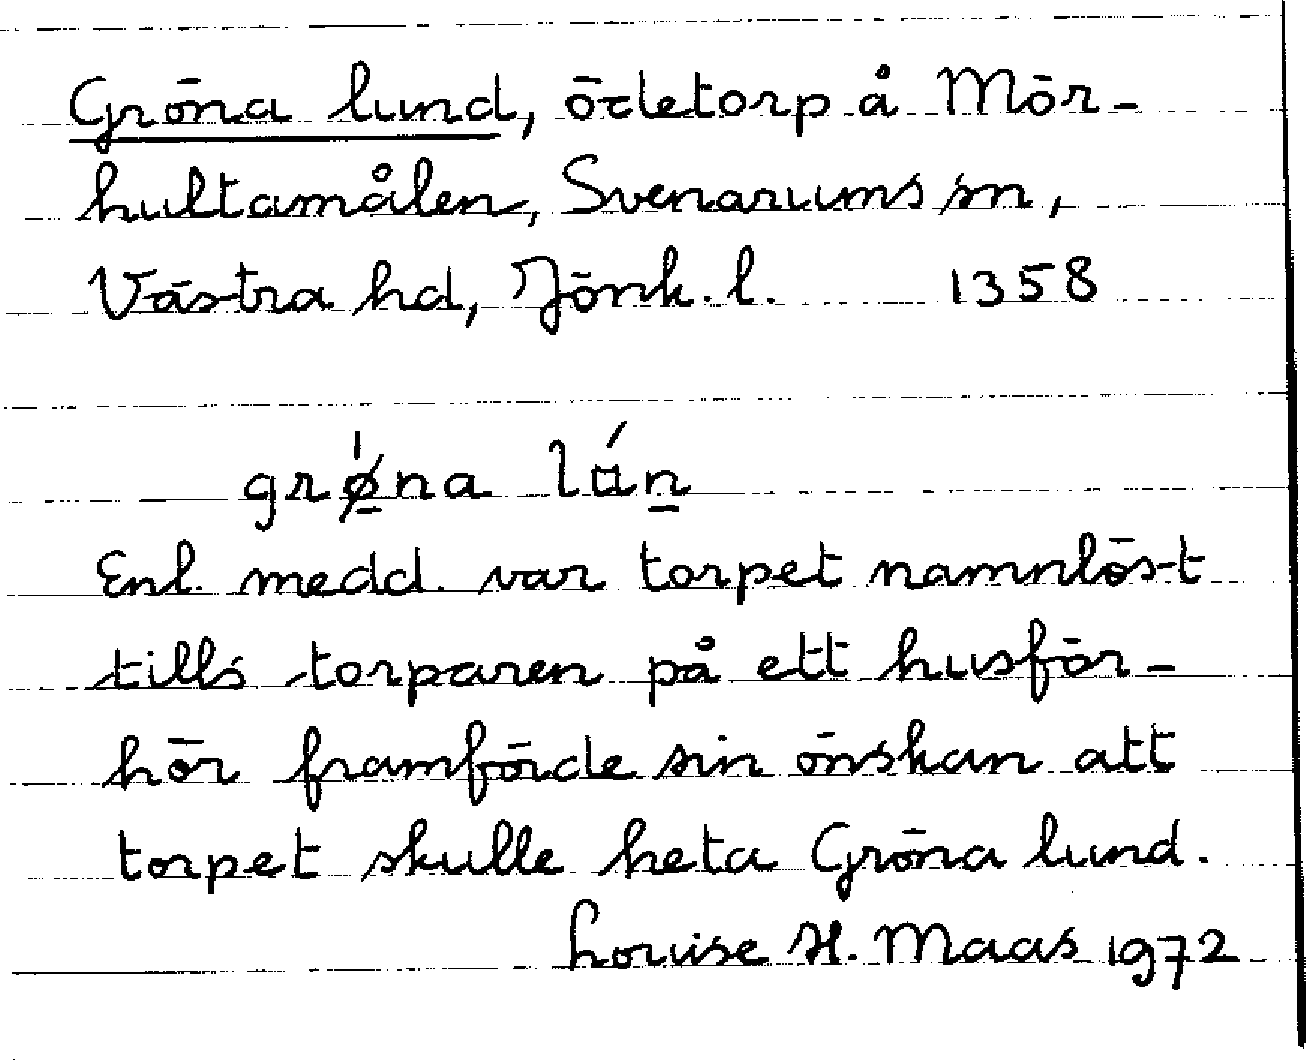 Gröna lund, ödetorp å Mör-
hultamålen, Svenarums sn,
Västra hd, Jönk. l. 1358
grǿ̲na lú̵n̲
Enl. medd. var torpet namnlöst
tills torparen på ett husför-
hör framförde sin önskan att
torpet skulle heta Gröna lund.
Louise H. Maas 1972